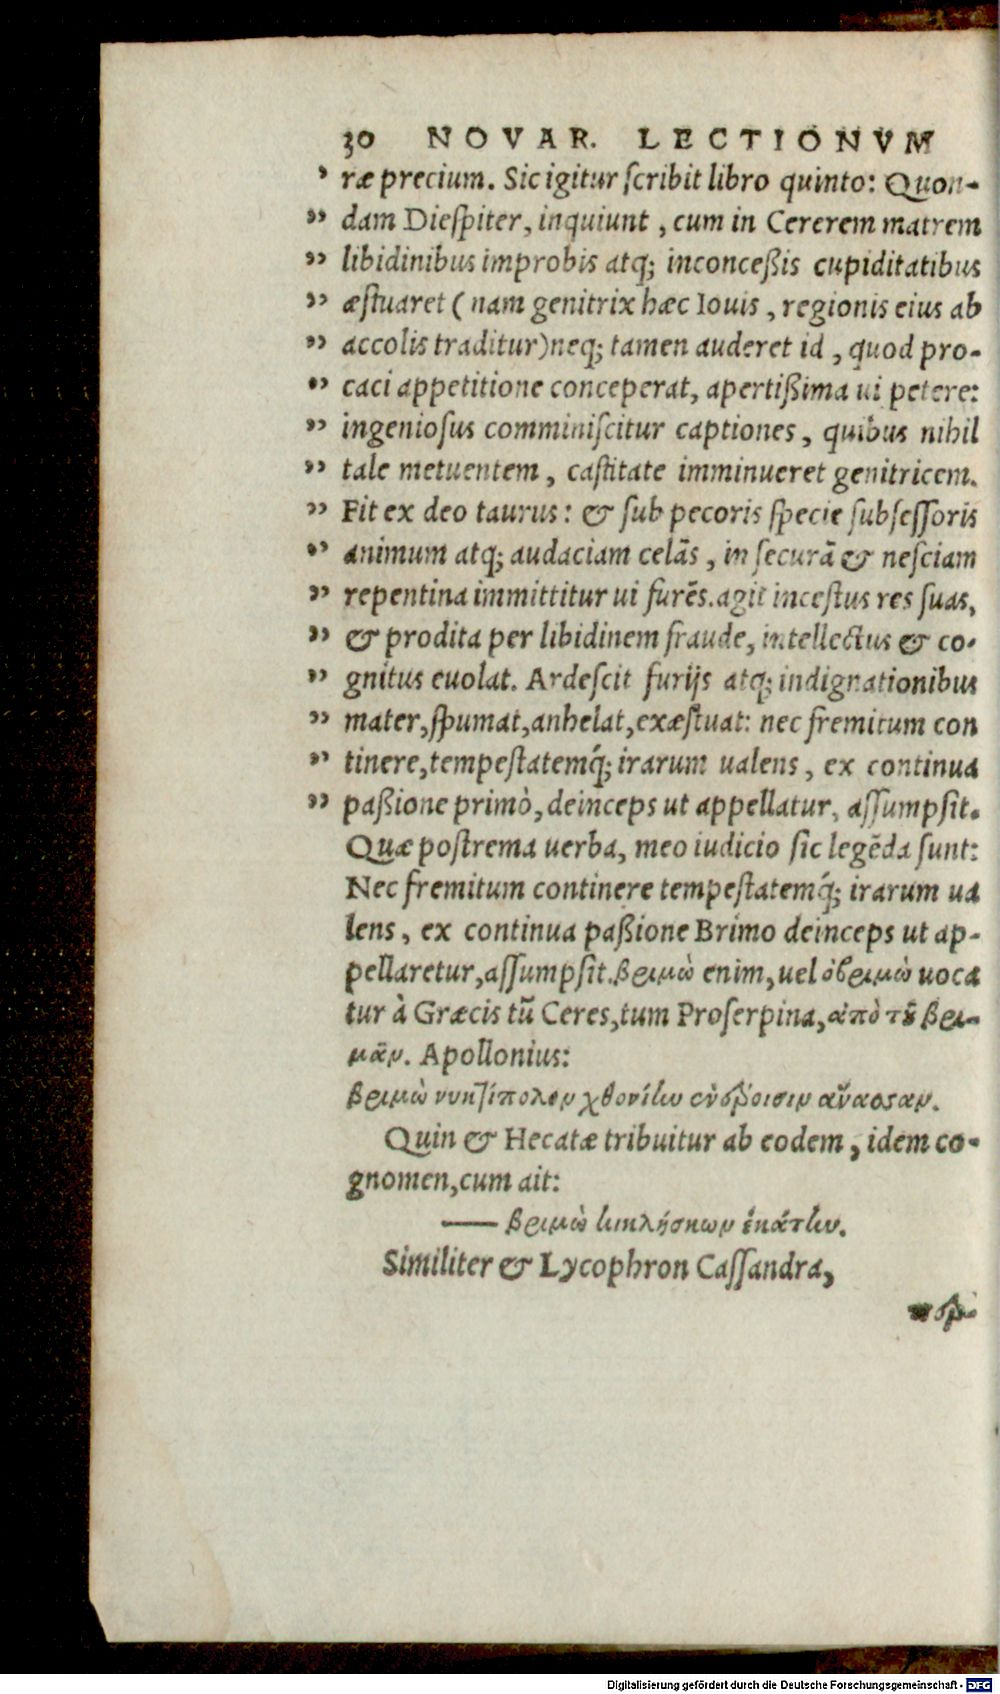 30 NOVAR. LECTIONVM
ræ precium. Sic igitur scribit libro quinto: Quon-
„ dam Diespiter, inquiunt, cum in Cererem matrem
„ libidinibus improbis atq; inconceßis cupiditatibus
„ æstuaret (nam genitrix hæc Iouis, regionis eius ab
„ accolis traditur) neq; tamen auderet id, quod pro-
„ caci appetitione conceperat, apertißima ui petere:
„ ingeniosus comminiscitur captiones, quibus nihil
„ tale metuentem, castitate imminueret genitricem.
„ Fit ex deo taurus: & sub pecoris specie subsessoris
„ animum atq; audaciam celās, in securā & nesciam
„ repentina immittitur ui furēs. agit incestus res suas,
„ & prodita per libidinem fraude, intellectus & co-
„ gnitus euolat. Ardescit furijs atq; indignationibus
„ mater, spumat, anhelat, exæstuat: nec fremitum con
„ tinere, tempestatemq́; irarum ualens, ex continua
„ paßione primò, deinceps ut appellatur, assumpsit.
Quæ postrema uerba, meo iudicio sic legēda sunt:
Nec fremitum continere tempestatemq́; irarum ua
lens, ex continua paßione Brimo deinceps ut ap-
pellaretur, assumpsit. βριμὼ enim, uel ὀβριμὼ uoca
tur à Græcis tū Ceres, tum Proserpina, ἀπὸ τȣ͂ βρι-
μᾶν. Apollonius:
βριμὼ νυκτίπολον χθονίην ἐνέροισιν ἄνασσαν.
Quin & Hecatæ tribuitur ab eodem, idem co-
gnomen, cum ait:
—— βριμὼ κικλήσκων ἑκάτην.
Similiter & Lycophron Cassandra,
Digitalisierung gefördert durch die Deutsche Forschungsgemeinschaft - DFG